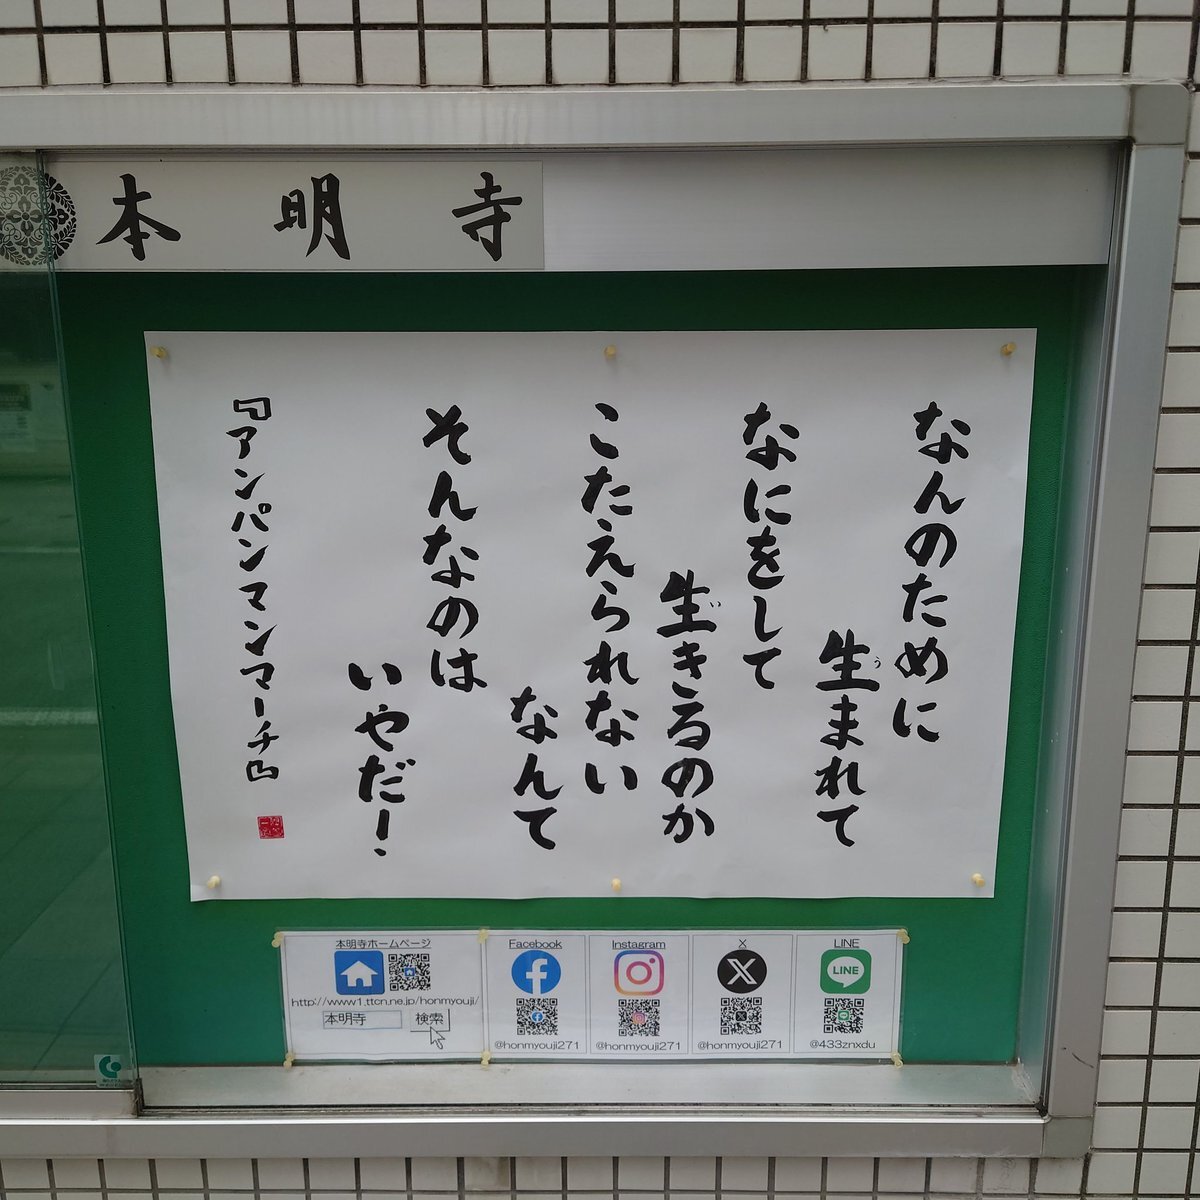 本明寺
なんのために
生まれて
う
なにをして
生きるのか
い
こたえられない
なんて
そんなのは
いやだ!
『アンパンマンマーチ』
本明寺ホームページ
http://www1.ttcn.ne.jp/honmyouji/
本明寺 検索
Facebook
@honmyouji271
Instagram
@honmyouji271
X
@honmyouji271
LINE
LINE
@433znxdu